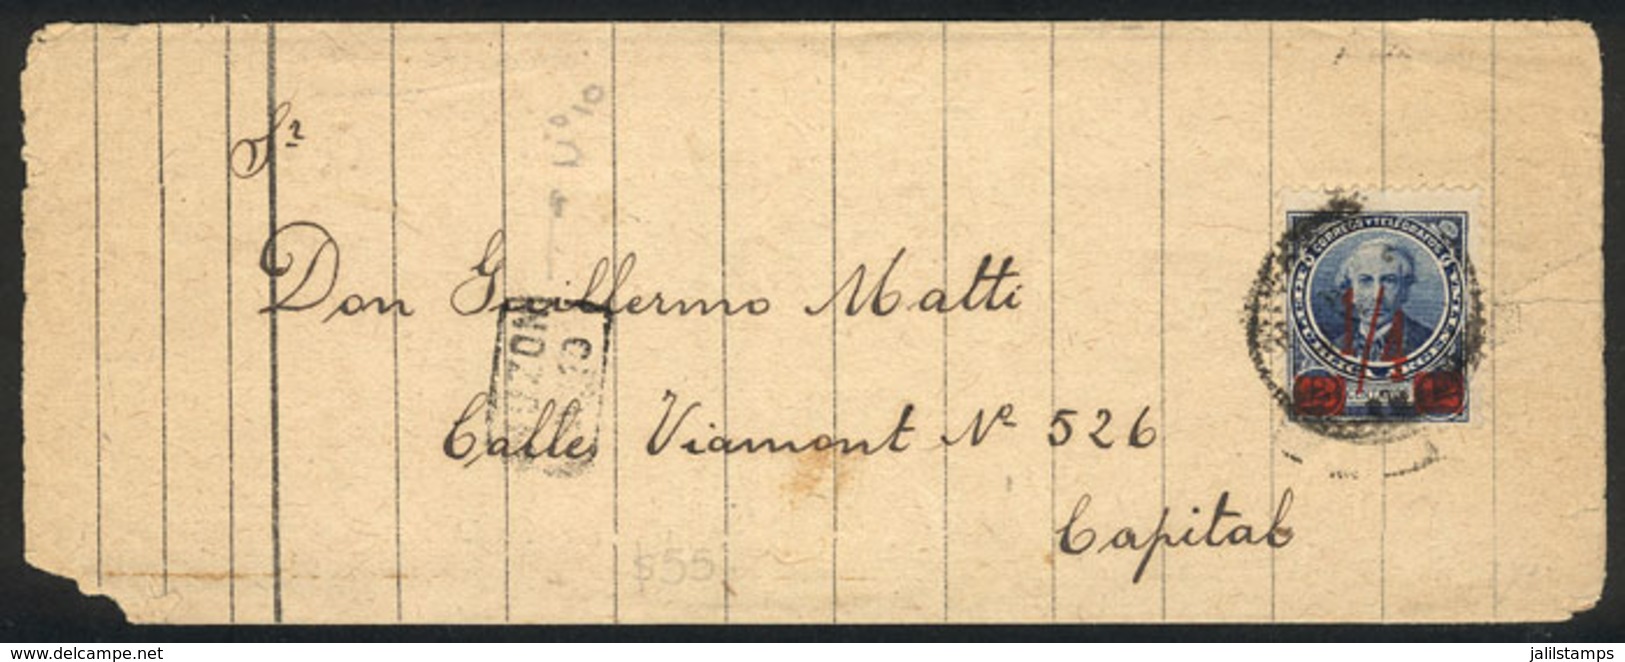 Sr
Don Guillermo Matti
Calle Viamont Nº 526
Capital
Nº 10
$55
BUZON
20
CORREOS Y TELEGRAFOS
1/4
www.delcampe.net
jalilstamps